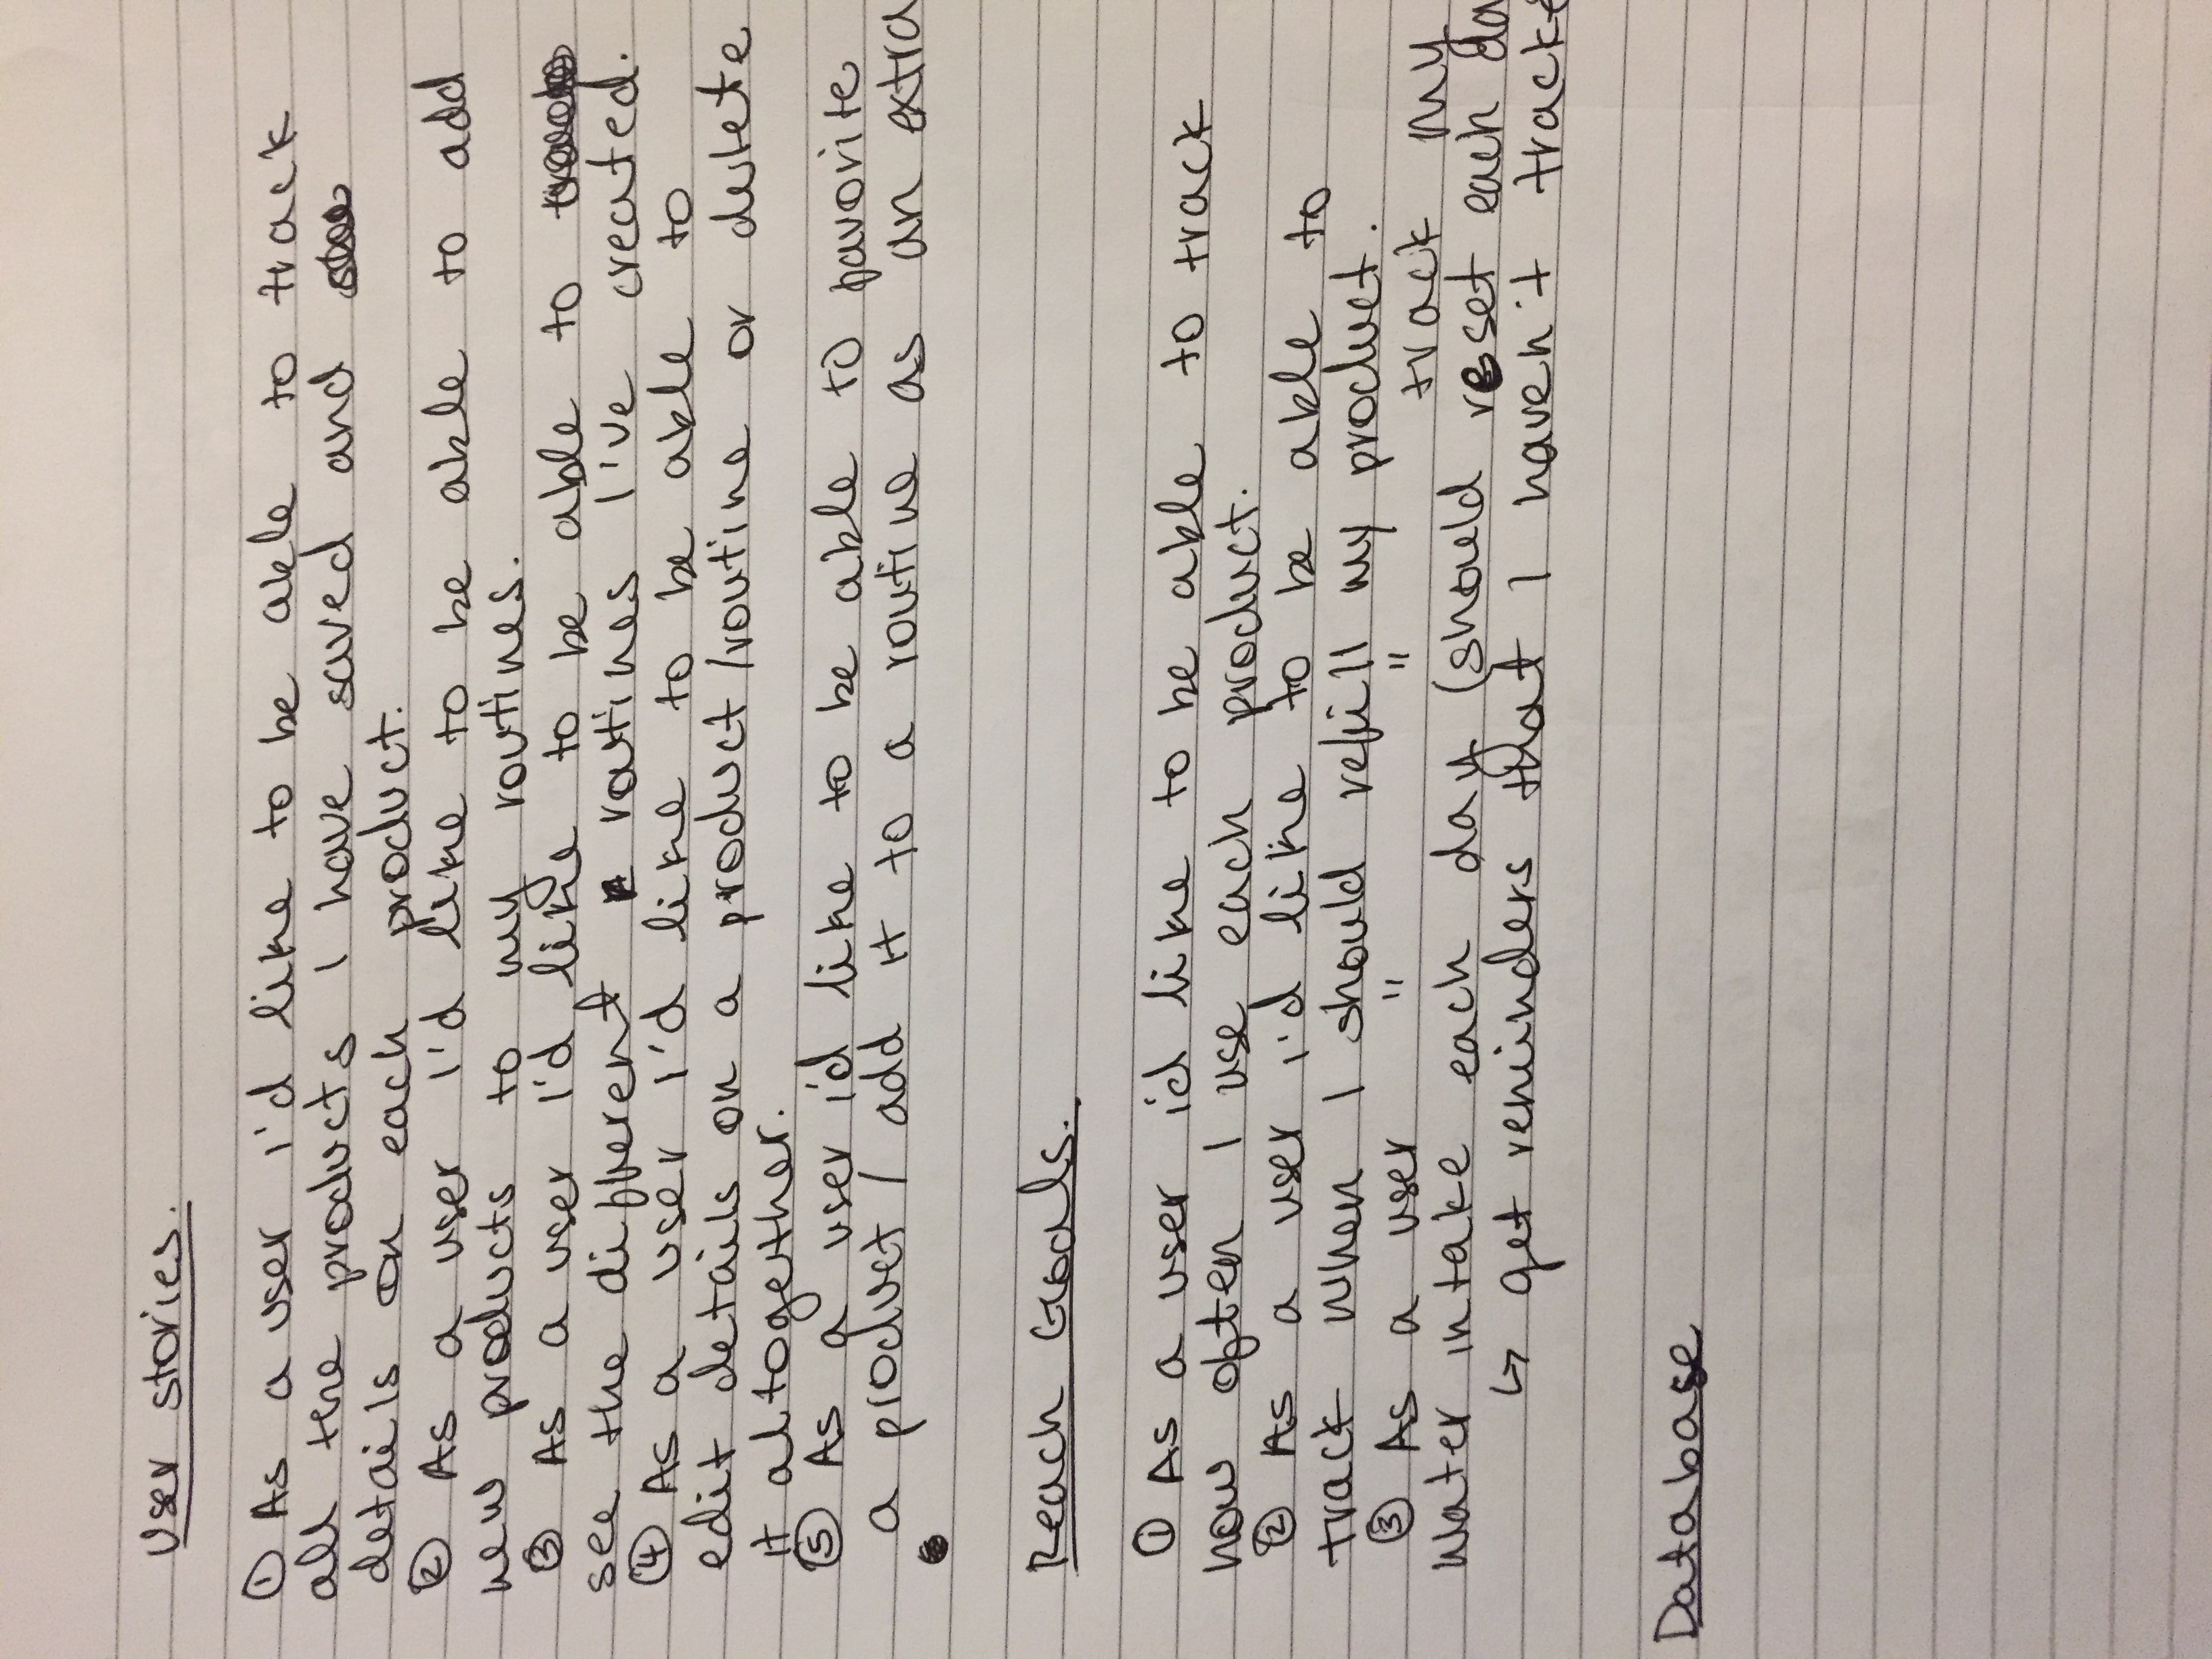 User stories.
① As a user i'd like to be able to track
all the products I have saved and
details on each product.
② As a user I'd like to be able to add
new products to my routines.
③ As a user I'd like to be able to
see the different routines I've created.
④ As a user I'd like to be able to
edit details on a product/routine or delete
it altogether.
⑤ As a user i'd like to be able to favorite
a product / add it to a routine as an extra
Reach Goals.
① As a user i'd like to be able to track
how often I use each product.
② As a user I'd like to be able to
track when I should refill my product.
③ As a user " " track my
water intake each day (should reset each da
↳ get reminders that I haven't tracke
Database